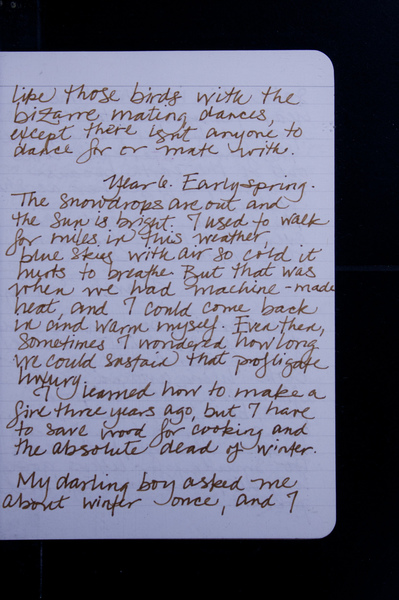 like those birds with the
bizarre mating dances,
except there isn't anyone to
dance for or mate with.
Year 6. Early spring.
The snowdrops are out and
the sun is bright. I used to walk
for miles in this weather,
blue skies with air so cold it
hurts to breathe. But that was
when we had machine-made
heat, and I could come back
in and warm myself. Even then,
sometimes I wondered how long
we could sustain that profligate
luxury.
I learned how to make a
fire three years ago, but I have
to save wood for cooking and
the absolute dead of winter.
My darling boy asked me
about winter once, and I